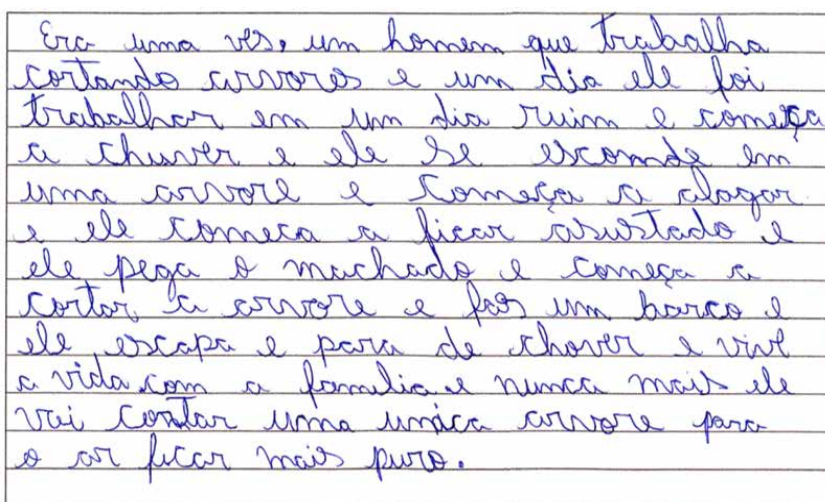 Era uma vês, um homem que trabalha
cortando arvores e um dia ele foi
trabalhar em um dia ruim e começa
a chuver e ele se esconde em
uma arvore e começa a alagar
e ele comeca a ficar asustado e
ele pega o machado e começa a
cortar a arvore e fas um barco e
ele escapa e para de chover e vive
a vida com a familia e nunca mais ele
vai contar uma unica arvore para
o ar ficar mais puro.